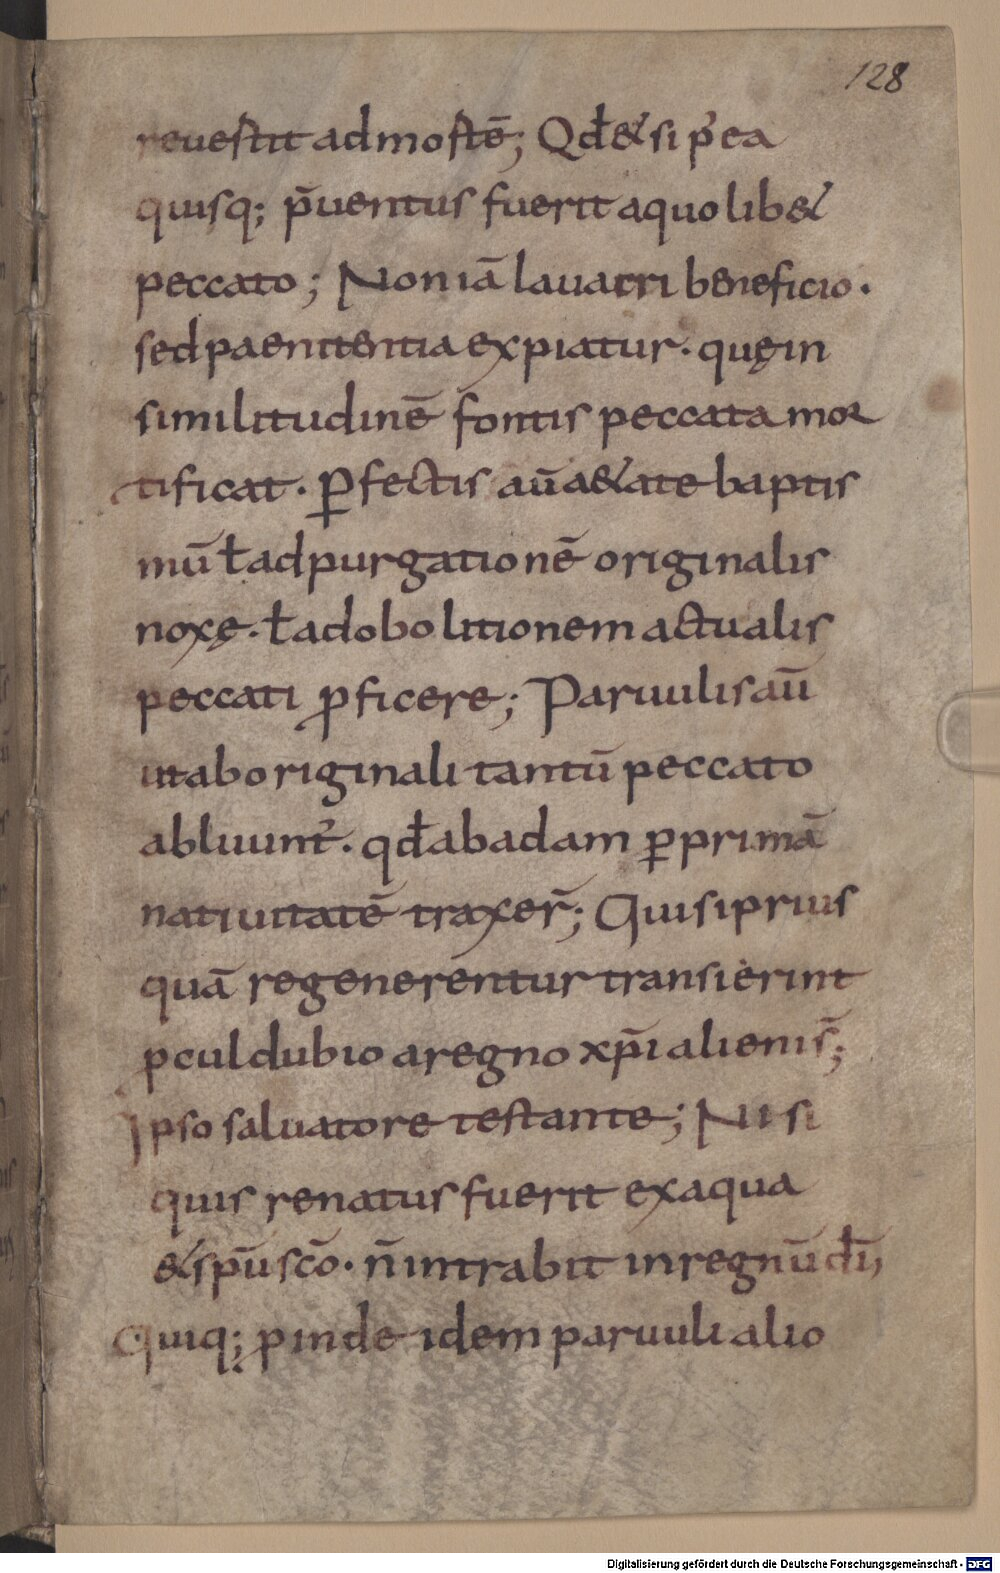 128
reuestit ad mortē; Qđ & si p̄ ea
quisq; p̄uentus fuerit a quolib&
peccato; Non iā lauacri beneficio.
sed paenitentia expiatur. quę in
similitudinē fontis peccata mor
tificat. Perfectis aū aetate baptis
mū ł ad purgationē originalis
noxę. ł ad obolitionem actualis
peccati ꝓficere; Paruulis aū
ut ab originali tantū peccato
abluunt̄. qđ ab adam ꝑ primā
natiuitatē traxer̄; Qui si prius
quā regenerentur transierint
ꝓcul dubio a regno xp̄i alieni s̄;
Ipso saluatore testante; Nisi
quis renatus fuerit ex aqua
& sp̄u scō. n̄ intrabit in regnū dī;
Quiq; ꝓinde idem paruuli alio
Digitalisierung gefördert durch die Deutsche Forschungsgemeinschaft - DFG